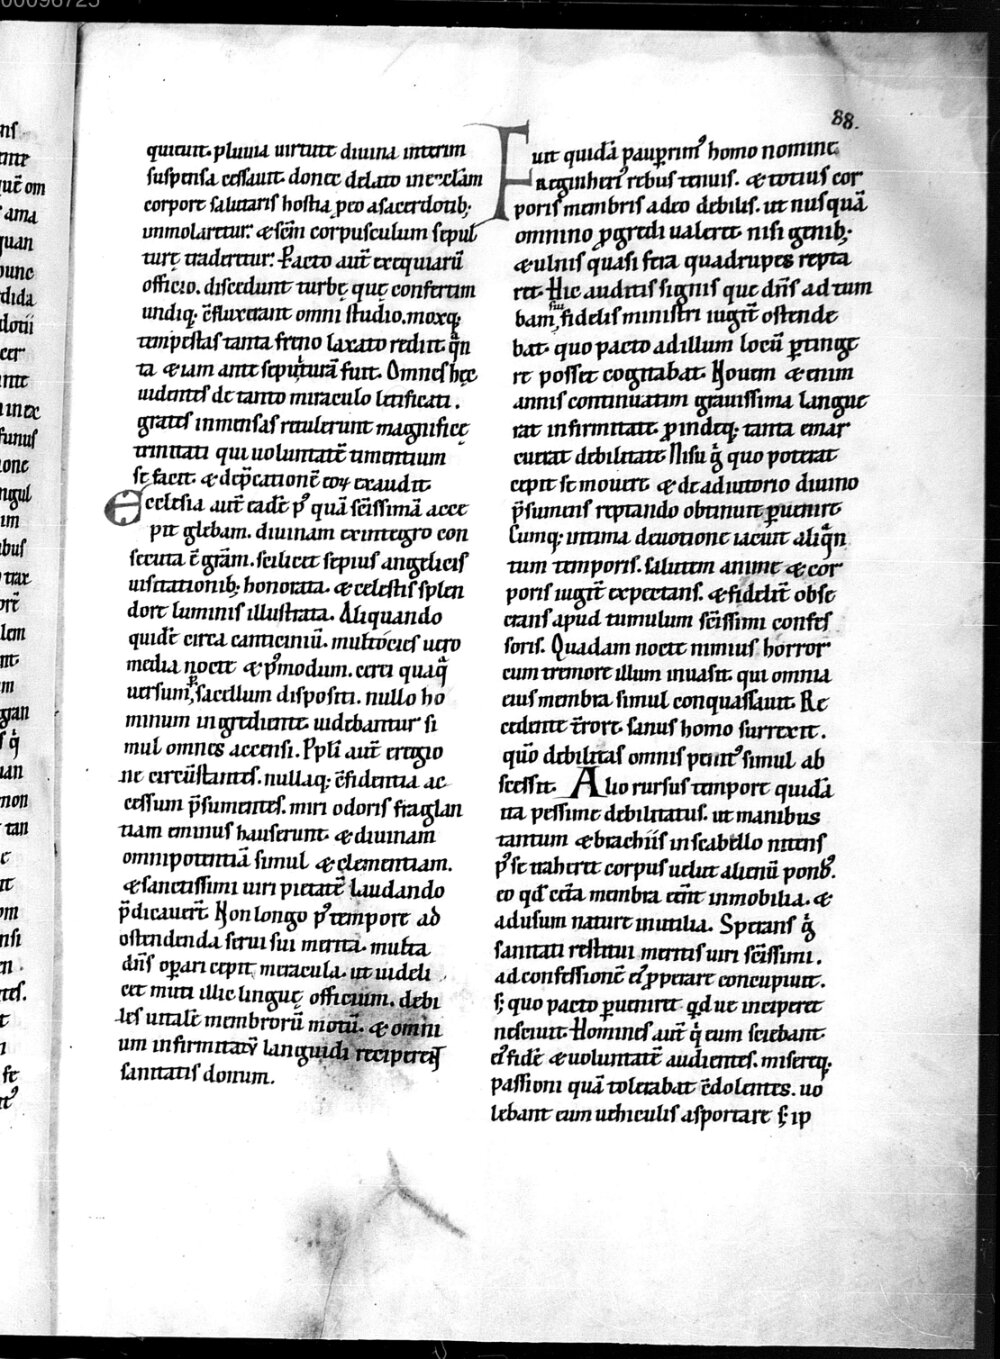 88.
quieuit. pluuia uirtute diuina interim
suspensa cessauit. donec delato in ecclam
corpore salutaris hostia, p eo a sacerdotib;
immolaretur. & scm corpusculum sepul
turę traderetur. Facto aut exequiarū
officio. discedunt turbę quę confertim
undiq; cfluxerant omni studio. moxq;
tempestas tanta freno laxato rediit. qn
ta & iam ante sepulturā fuit. Omnes hęc
uidentes de tanto miraculo letificati.
grates inmensas retulerunt magnificę
trinitati qui uoluntatē timentium
se facit. & dep̄cationē eoꝝ exaudit.
Ecclesia aut eadē pꝰ quā scissimā acce
pit glebam. diuinam ex integro con
secuta ē grām. scilicet sepius angelicis
uisitationib; honorata. & celestis splen
dore luminis illustrata. Aliquando
quidē circa canticiniū. multocies uero
media nocte & pꝰmodum. cerei quaq
uersum, p sacellum dispositi. nullo ho
minum ingrediente uidebantur si
mul omnes accensi. Ppli aut eregio
ne circūstantes. nullaq; cfidentia ac
cessum p̄sumentes. miri odoris fraglan
tiam eminus hauserunt. & diuinam
omnipotentiā simul & clementiam.
& sanctissimi uiri pietatē laudando
p̄dicauert. Non longo pꝰ tempore ad
ostendenda serui sui merita. multa
dns opari cepit miracula. ut uideli
cet muti illic linguę officium. debi
les uitalē membrorū motū. & omni
um infirmitatū languidi reciperent
sanitatis donum.
Fuit quidā paup̄rimꝰ homo nomine
Reginherꝰ rebus tenuis. & totius cor
poris membris adeo debilis. ut nusquā
omnino pgredi ualeret nisi genib;
& ulnis quasi fera quadrupes repta
ret. Hic auditis signis que dns ad tum
bam sui fidelis ministri iugit ostende
bat. quo pacto ad illum locū ptinge
re posset cogitabat. Nouem & enim
annis continuatim grauissima langue
rat infirmitate pindeq; tanta emar
cuerat debilitate. Nisu g quo poterat
cepit se mouere & de adiutorio diuino
p̄sumens reptando obtinuit puenire
Cumq; intima deuotione iacuit aliqn
tum temporis. salutem anime & cor
poris iugit expectans. & fidelit obse
crans apud tumulum scissimi confes
soris. Quadam nocte nimius horror
cum tremore illum inuasit. qui omnia
eius membra simul conquassauit. Re
cedente t̄rore. sanus homo surrexit.
quō debilitas omnis penitꝰ simul ab
scessit. Alio rursus tempore quidā
ita pessime debilitatus. ut manibus
tantum & brachiis in scabello nitens
pꝰ se traheret corpus uelut alienū pondꝰ.
eo qd cetera membra erēt inmobilia. &
ad usum nature inutilia. Sperans g
sanitati restitui meritis uiri scissimi.
ad confessionē ei pperare concupiuit.
s; quo pacto pueniret. qd ue inciperet
nesciuit. Homines aut q eum sciebant.
ei fidē & uoluntatē audientes. misereq;
passioni quā tolerabat cdolentes. uo
lebant eum uehiculis asportare s; ip